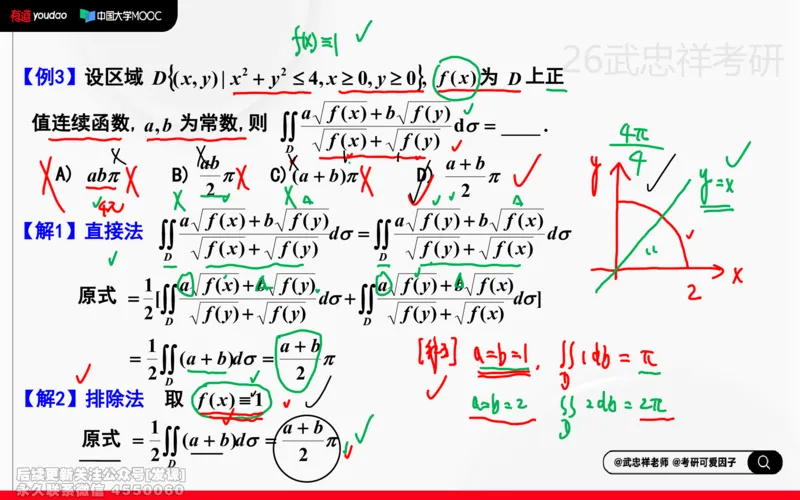 有道 youdao 中国大学MOOC
f(x)≡1
26武忠祥考研
【例3】设区域 D{(x,y)|x²+y²≤4,x≥0,y≥0}, f(x)为 D 上正
值连续函数, a,b 为常数,则 ∬_D (a√f(x)+b√f(y))/(√f(x)+√f(y)) dσ = ____.
4π/4
A) abπ B) ab/2 π C) (a+b)π D) (a+b)/2 π
4π
y y=x
x
2
【解1】直接法 ∬_D (a√f(x)+b√f(y))/(√f(x)+√f(y)) dσ = ∬_D (a√f(y)+b√f(x))/(√f(y)+√f(x)) dσ
原式 = 1/2[∬_D (a√f(x)+b√f(y))/(√f(y)+√f(y)) dσ + ∬_D (a√f(y)+b√f(x))/(√f(y)+√f(x)) dσ]
= 1/2 ∬_D (a+b)dσ = (a+b)/2 π
[解3] a=b=1, ∬_D 1dσ = π
【解2】排除法 取 f(x)≡1
a=b=2 ∬_D 2dσ = 2π
原式 = 1/2 ∬_D (a+b)dσ = (a+b)/2 π
@武忠祥老师 @考研可爱因子
后续更新关注公众号[发课]
永久联系微信 4550060